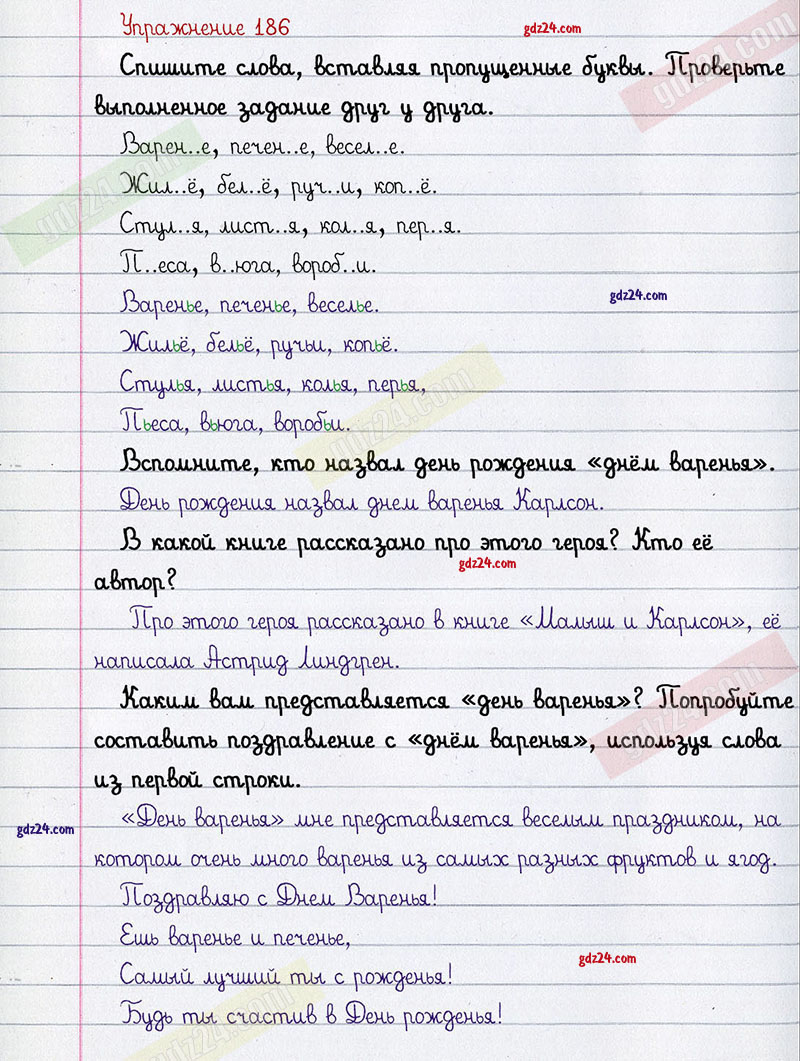 Упражнение 186
gdz24.com
gdz24.com
Спишите слова, вставляя пропущенные буквы. Проверьте
выполненное задание друг у друга.
Варен..е, печен..е, весел..е.
gdz24.com
Жил..ё, бел..ё, руч..и, коп..ё.
Стул..я, лист..я, кол..я, пер..я.
П..еса, в..юга, вороб..и.
Варенье, печенье, веселье.
gdz24.com
Жильё, бельё, ручьи, копьё.
Стулья, листья, колья, перья,
gdz24.com
Пьеса, вьюга, воробьи.
Вспомните, кто назвал день рождения «днём варенья».
День рождения назвал днем варенья Карлсон.
В какой книге рассказано про этого героя? Кто её
gdz24.com
автор?
Про этого героя рассказано в книге «Малыш и Карлсон», её
написала Астрид Линдгрен.
Каким вам представляется «день варенья»? Попробуйте
gdz24.com
составить поздравление с «днём варенья», используя слова
из первой строки.
«День варенья» мне представляется веселым праздником, на
gdz24.com
котором очень много варенья из самых разных фруктов и ягод.
Поздравляю с Днем Варенья!
Ешь варенье и печенье,
gdz24.com
Самый лучший ты с рожденья!
Будь ты счастив в День рожденья!
gdz24.com